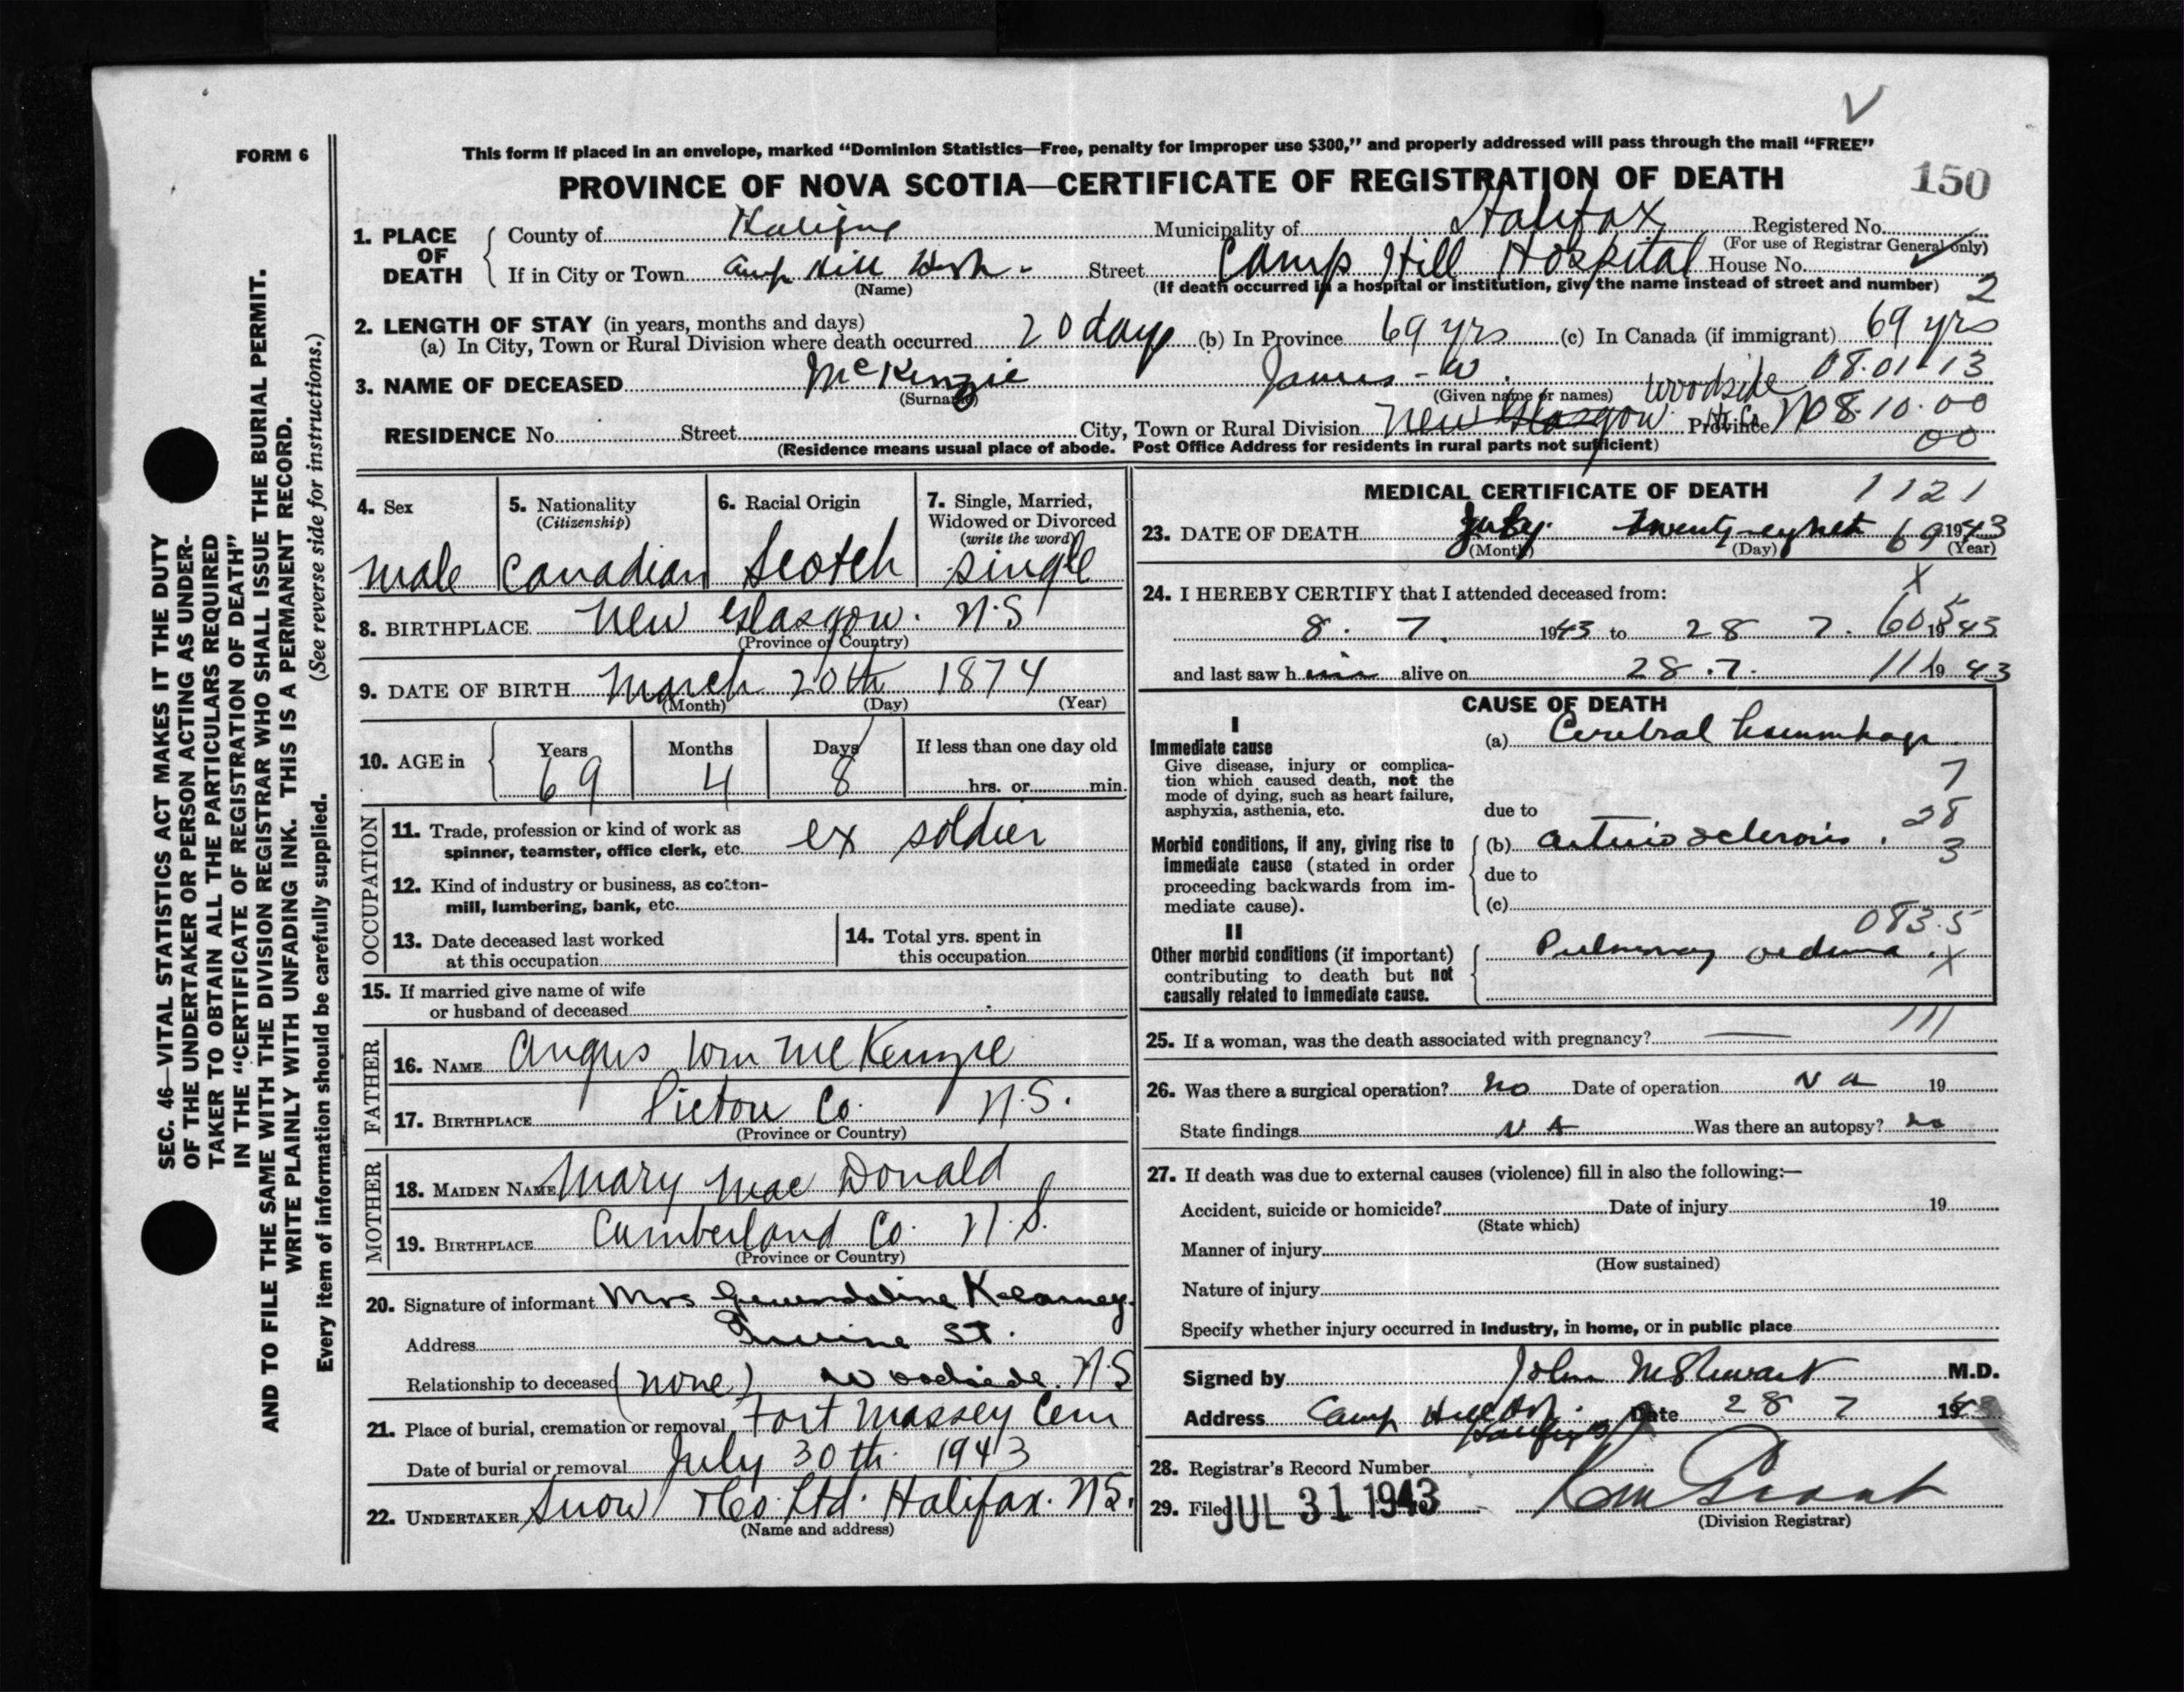 FORM 6
This form if placed in an envelope, marked “Dominion Statistics—Free, penalty for improper use $300,” and properly addressed will pass through the mail “FREE”
PROVINCE OF NOVA SCOTIA—CERTIFICATE OF REGISTRATION OF DEATH
150
1. PLACE OF DEATH
County of Halifax Municipality of Halifax Registered No.
(For use of Registrar General only)
If in City or Town Camp Hill Hosp. Street Camp Hill Hospital House No.
(Name) (If death occurred in a hospital or institution, give the name instead of street and number) 2
2. LENGTH OF STAY (in years, months and days)
(a) In City, Town or Rural Division where death occurred 20 days (b) In Province 69 yrs (c) In Canada (if immigrant) 69 yrs
3. NAME OF DECEASED McKenzie James - W. Woodside 08.01.13
(Surname) (Given name or names)
RESIDENCE No. Street City, Town or Rural Division New Glasgow Hx Co Province N 08.10.00
(Residence means usual place of abode. Post Office Address for residents in rural parts not sufficient) 00
4. Sex
male
5. Nationality
(Citizenship)
Canadian
6. Racial Origin
Scotch
7. Single, Married, Widowed or Divorced
(write the word)
single
8. BIRTHPLACE New Glasgow. N.S
(Province or Country)
9. DATE OF BIRTH March 20th 1874
(Month) (Day) (Year)
10. AGE in
Years Months Days If less than one day old
69 4 8 hrs. or min.
OCCUPATION
11. Trade, profession or kind of work as
spinner, teamster, office clerk, etc. ex soldier
12. Kind of industry or business, as cotton-
mill, lumbering, bank, etc.
13. Date deceased last worked
at this occupation
14. Total yrs. spent in
this occupation
15. If married give name of wife
or husband of deceased
FATHER
16. NAME Angus Wm McKenzie
17. BIRTHPLACE Pictou Co. N.S.
(Province or Country)
MOTHER
18. MAIDEN NAME Mary Mac Donald
19. BIRTHPLACE Cumberland Co. N.S.
(Province or Country)
20. Signature of informant Mrs Gwendoline Kelarney
Address Irvine St.
Relationship to deceased (none) Woodside. N.S
21. Place of burial, cremation or removal Fort Massey Cem
Date of burial or removal July 30th 1943
22. UNDERTAKER Snow & Co. Ltd. Halifax. N.S.
(Name and address)
MEDICAL CERTIFICATE OF DEATH 1121
23. DATE OF DEATH July twenty-eight 69 1943
(Month) (Day) (Year)
24. I HEREBY CERTIFY that I attended deceased from: X
8. 7. 1943 to 28 7. 605 1943
and last saw him alive on 28.7. 111 1943
CAUSE OF DEATH
I
Immediate cause
Give disease, injury or complica-
tion which caused death, not the
mode of dying, such as heart failure,
asphyxia, asthenia, etc.
(a) Cerebral haemorrhage
7
due to
28
Morbid conditions, if any, giving rise to
immediate cause (stated in order
proceeding backwards from im-
mediate cause).
(b) arterio sclerosis. 3
due to
(c)
083.5
II
Other morbid conditions (if important)
contributing to death but not
causally related to immediate cause.
Pulmonary oedema. X
111
25. If a woman, was the death associated with pregnancy?
26. Was there a surgical operation? No Date of operation N A 19
State findings N A Was there an autopsy? no
27. If death was due to external causes (violence) fill in also the following:—
Accident, suicide or homicide? Date of injury 19
(State which)
Manner of injury
(How sustained)
Nature of injury
Specify whether injury occurred in industry, in home, or in public place
Signed by John M Stewart M.D.
Address Camp Hill Hosp. Halifax Date 28 7 1943
28. Registrar's Record Number
29. Filed JUL 31 1943
(Division Registrar)
SEC. 46—VITAL STATISTICS ACT MAKES IT THE DUTY
OF THE UNDERTAKER OR PERSON ACTING AS UNDER-
TAKER TO OBTAIN ALL THE PARTICULARS REQUIRED
IN THE “CERTIFICATE OF REGISTRATION OF DEATH”
AND TO FILE THE SAME WITH THE DIVISION REGISTRAR WHO SHALL ISSUE THE BURIAL PERMIT.
WRITE PLAINLY WITH UNFADING INK. THIS IS A PERMANENT RECORD.
Every item of information should be carefully supplied. (See reverse side for instructions.)